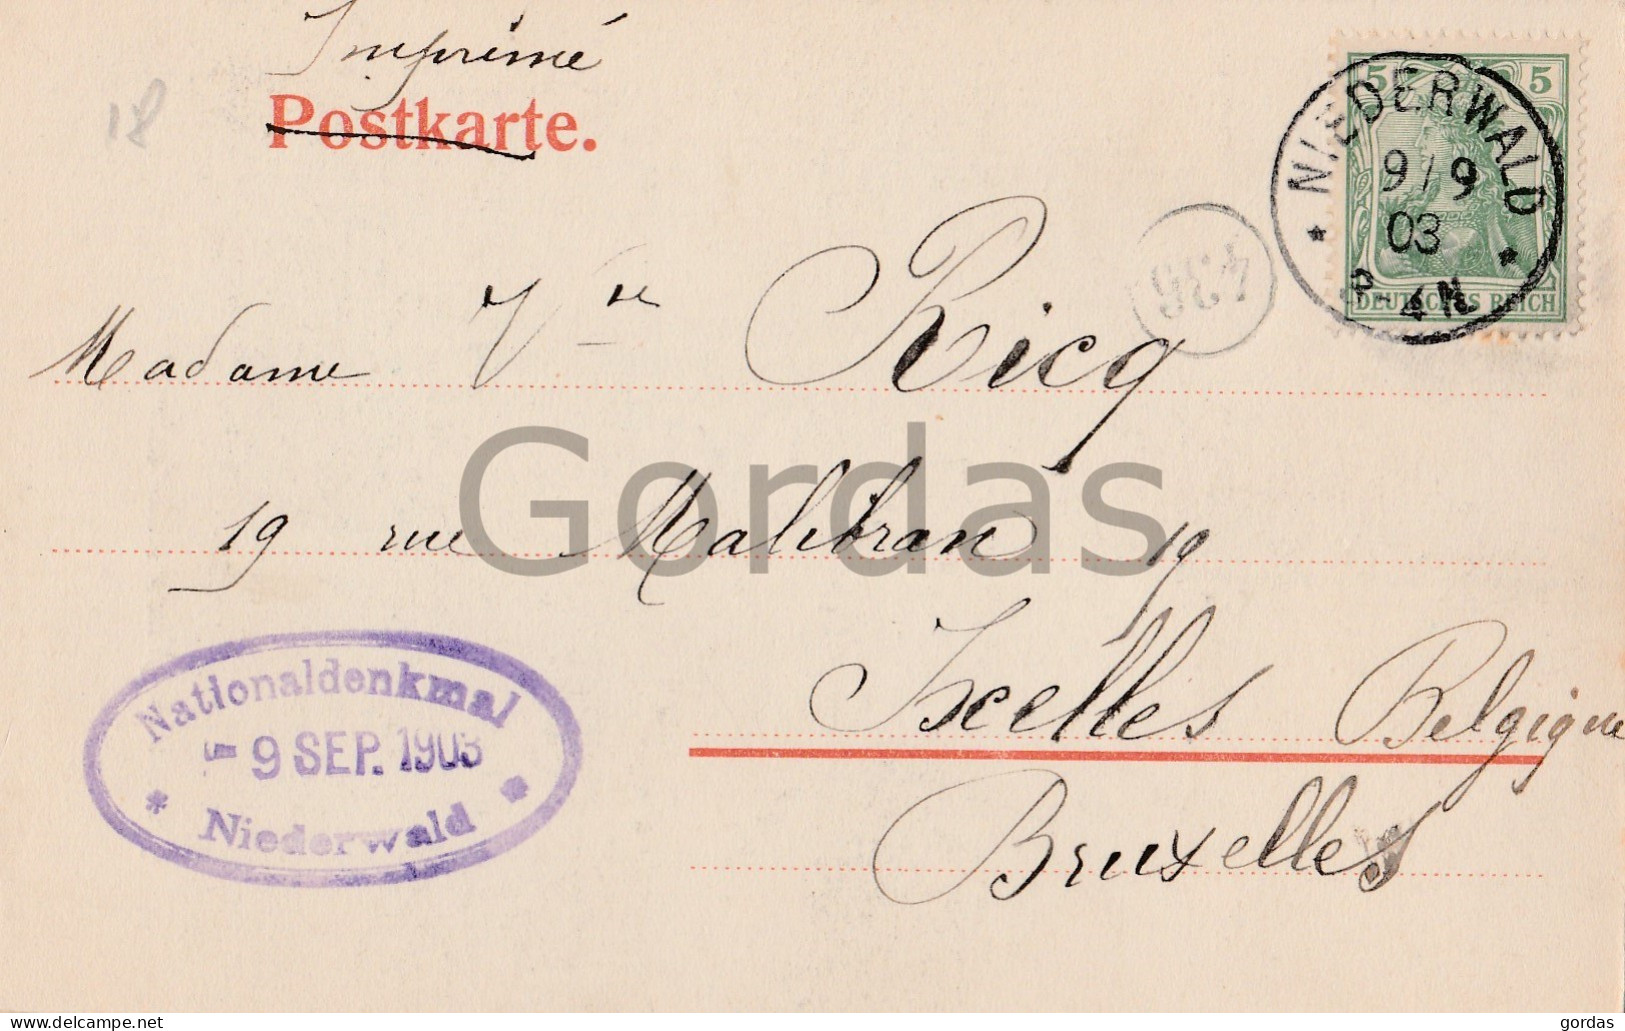 Imprimé
18
Postkarte.
5 5
NIEDERWALD
9/9
03
3-4N
DEUTSCHES REICH
435
Madame Vve Ricq
Gordas
19 rue Malibran 19
Ixelles Belgique
Bruxelles
Nationaldenkmal
- 9 SEP. 1903
* Niederwald *
www.delcampe.net
gordas